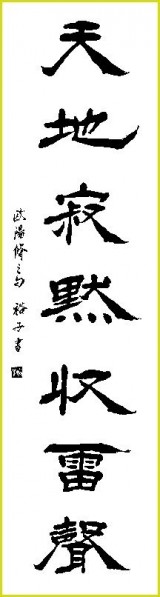 天地寂默収雷聲
欧陽脩之句 裕子書